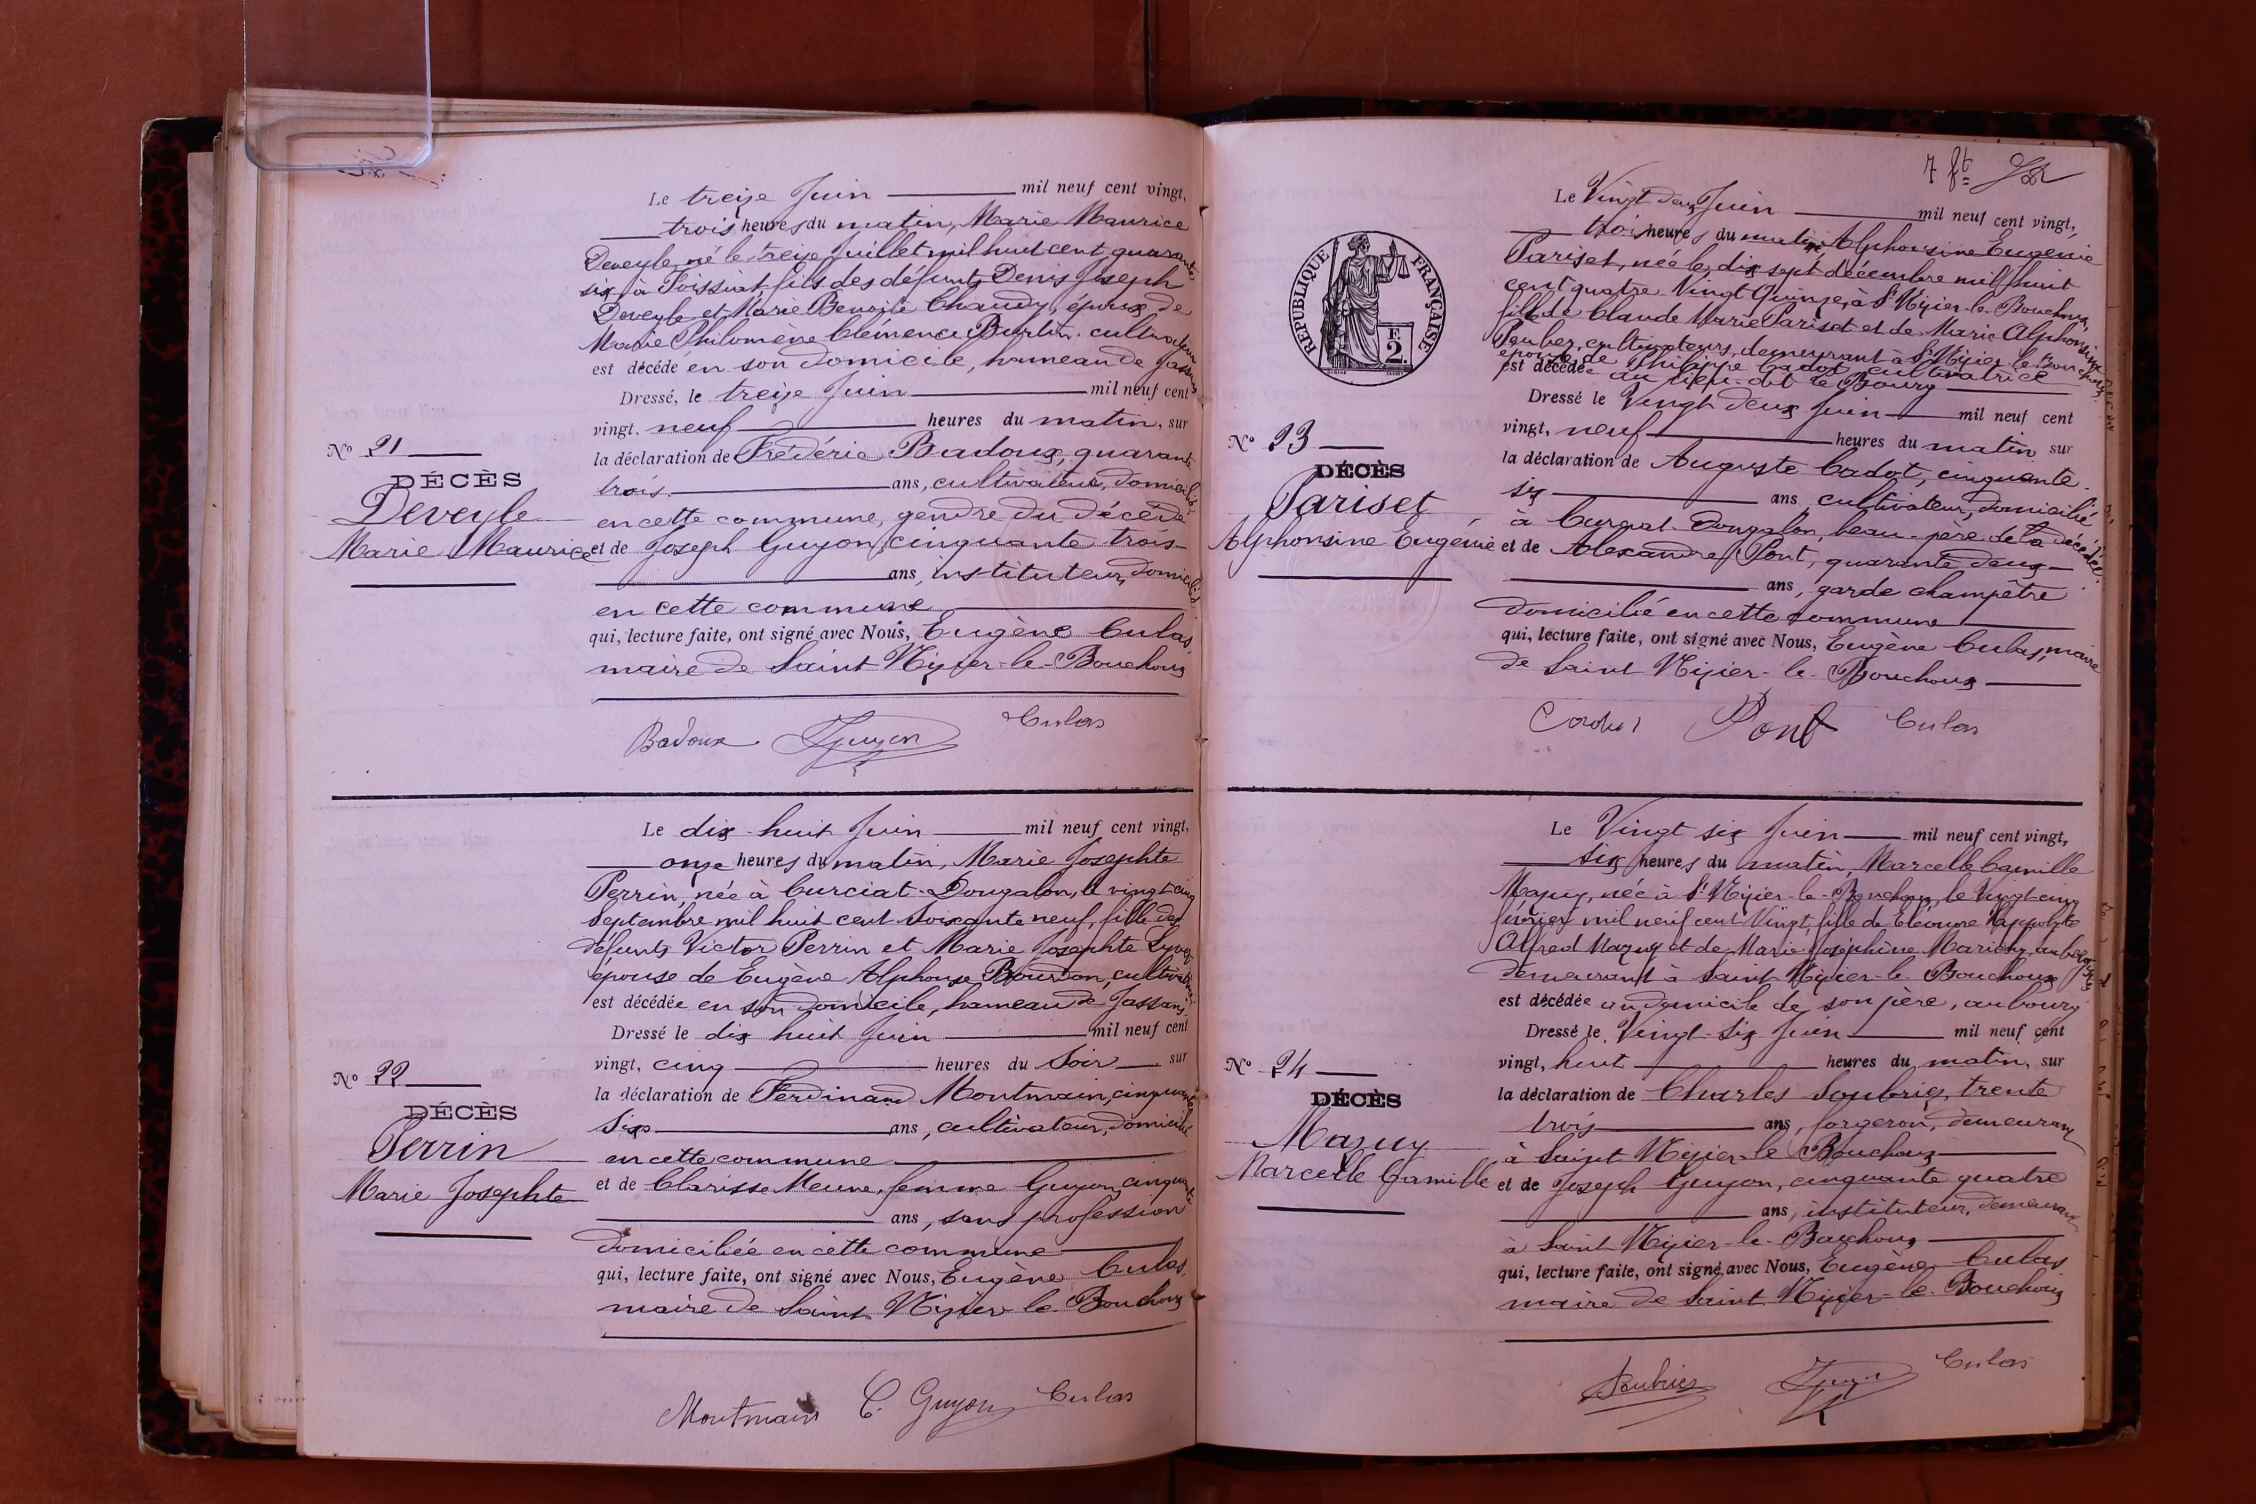 Le treize Juin mil neuf cent vingt,
trois heures du matin, Marie Maurice
Deveyle né le treize Juillet mil huit cent quarante
six à Foissiat, fils des défunts Denis Joseph
Deveyle et Marie Benoite Chaudy, époux de
Marie Philomène Clémence Burtin. cultivateur
est décédé en son domicile, hameau de Jassans
Dressé, le treize Juin mil neuf cent
vingt, neuf heures du matin, sur
la déclaration de Frédéric Badoux, quarante
trois ans, cultivateur, domicilié
en cette commune, gendre du décédé
et de Joseph Guyon, cinquante trois
ans, instituteur, domicilié
en cette commune
qui, lecture faite, ont signé avec Nous, Eugène Culas,
maire de Saint Nizier-le-Bouchoux
Badoux Guyon Culas
No 21
DÉCÈS
Deveyle
Marie Maurice
Le dix-huit Juin mil neuf cent vingt,
onze heures du matin, Marie Josephte
Perrin, née à Curciat-Dongalon, le vingt cinq
Septembre mil huit cent soixante neuf, fille des
défunts Victor Perrin et Marie Josephte
épouse de Eugène Alphonse Bourdon, cultivatrice
est décédée en son domicile, hameau de Jassans
Dressé le dix huit Juin mil neuf cent
vingt, cinq heures du Soir sur
la déclaration de Ferdinand Montmain, cinquante
six ans, cultivateur, domicilié
en cette commune
et de Clarisse Meune, femme Guyon, cinquante
ans, sans profession
domiciliée en cette commune
qui, lecture faite, ont signé avec Nous, Eugène Culas,
maire de Saint Nizier-le-Bouchoux
Montmain C. Guyon Culas
No 22
DÉCÈS
Perrin
Marie Josephte
7 ft
RÉPUBLIQUE FRANÇAISE
F.
2.
Le Vingt deux Juin mil neuf cent vingt,
trois heures du matin Alphonsine Eugénie
Pariset, née le dix sept décembre mil huit
cent quatre-Vingt Quinze, à St Nizier-le-Bouchoux,
fille de Claude Marie Pariset et de Marie Alphonsine
cultivateurs, demeurant à St Nizier-le-Bouchoux
épouse de Philippe Cadot, cultivatrice
est décédée au lieu-dit le Bourg
Dressé le Vingt deux Juin mil neuf cent
vingt, neuf heures du matin sur
la déclaration de Auguste Cadot, cinquante
six ans, cultivateur, domicilié
à Curciat-Dongalon, beau-père de la décédée
et de Alexandre Pont, quarante deux
ans, garde champêtre
domicilié en cette commune
qui, lecture faite, ont signé avec Nous, Eugène Culas, maire
de Saint Nizier-le-Bouchoux
Cadot Pont Culas
No 23
DÉCÈS
Pariset
Alphonsine Eugénie
Le Vingt six Juin mil neuf cent vingt,
six heures du matin, Marcelle Camille
Mazuy, née à St Nizier-le-Bouchoux, le Vingt-cinq
février mil neuf cent Vingt, fille de Eléonore Hyppolyte
Alfred Mazuy et de Marie Joséphine Marichy, aubergistes
demeurant à Saint Nizier-le-Bouchoux
est décédée au domicile de son père, au bourg
Dressé le Vingt-six Juin mil neuf cent
vingt, huit heures du matin, sur
la déclaration de Charles Soubrier, trente
trois ans, forgeron, demeurant
à Saint Nizier-le Bouchoux
et de Joseph Guyon, cinquante quatre
ans, instituteur, demeurant
à Saint Nizier-le-Bouchoux
qui, lecture faite, ont signé avec Nous, Eugène Culas
maire de Saint Nizier-le-Bouchoux
Soubrier Guyon Culas
No 24
DÉCÈS
Mazuy
Marcelle Camille